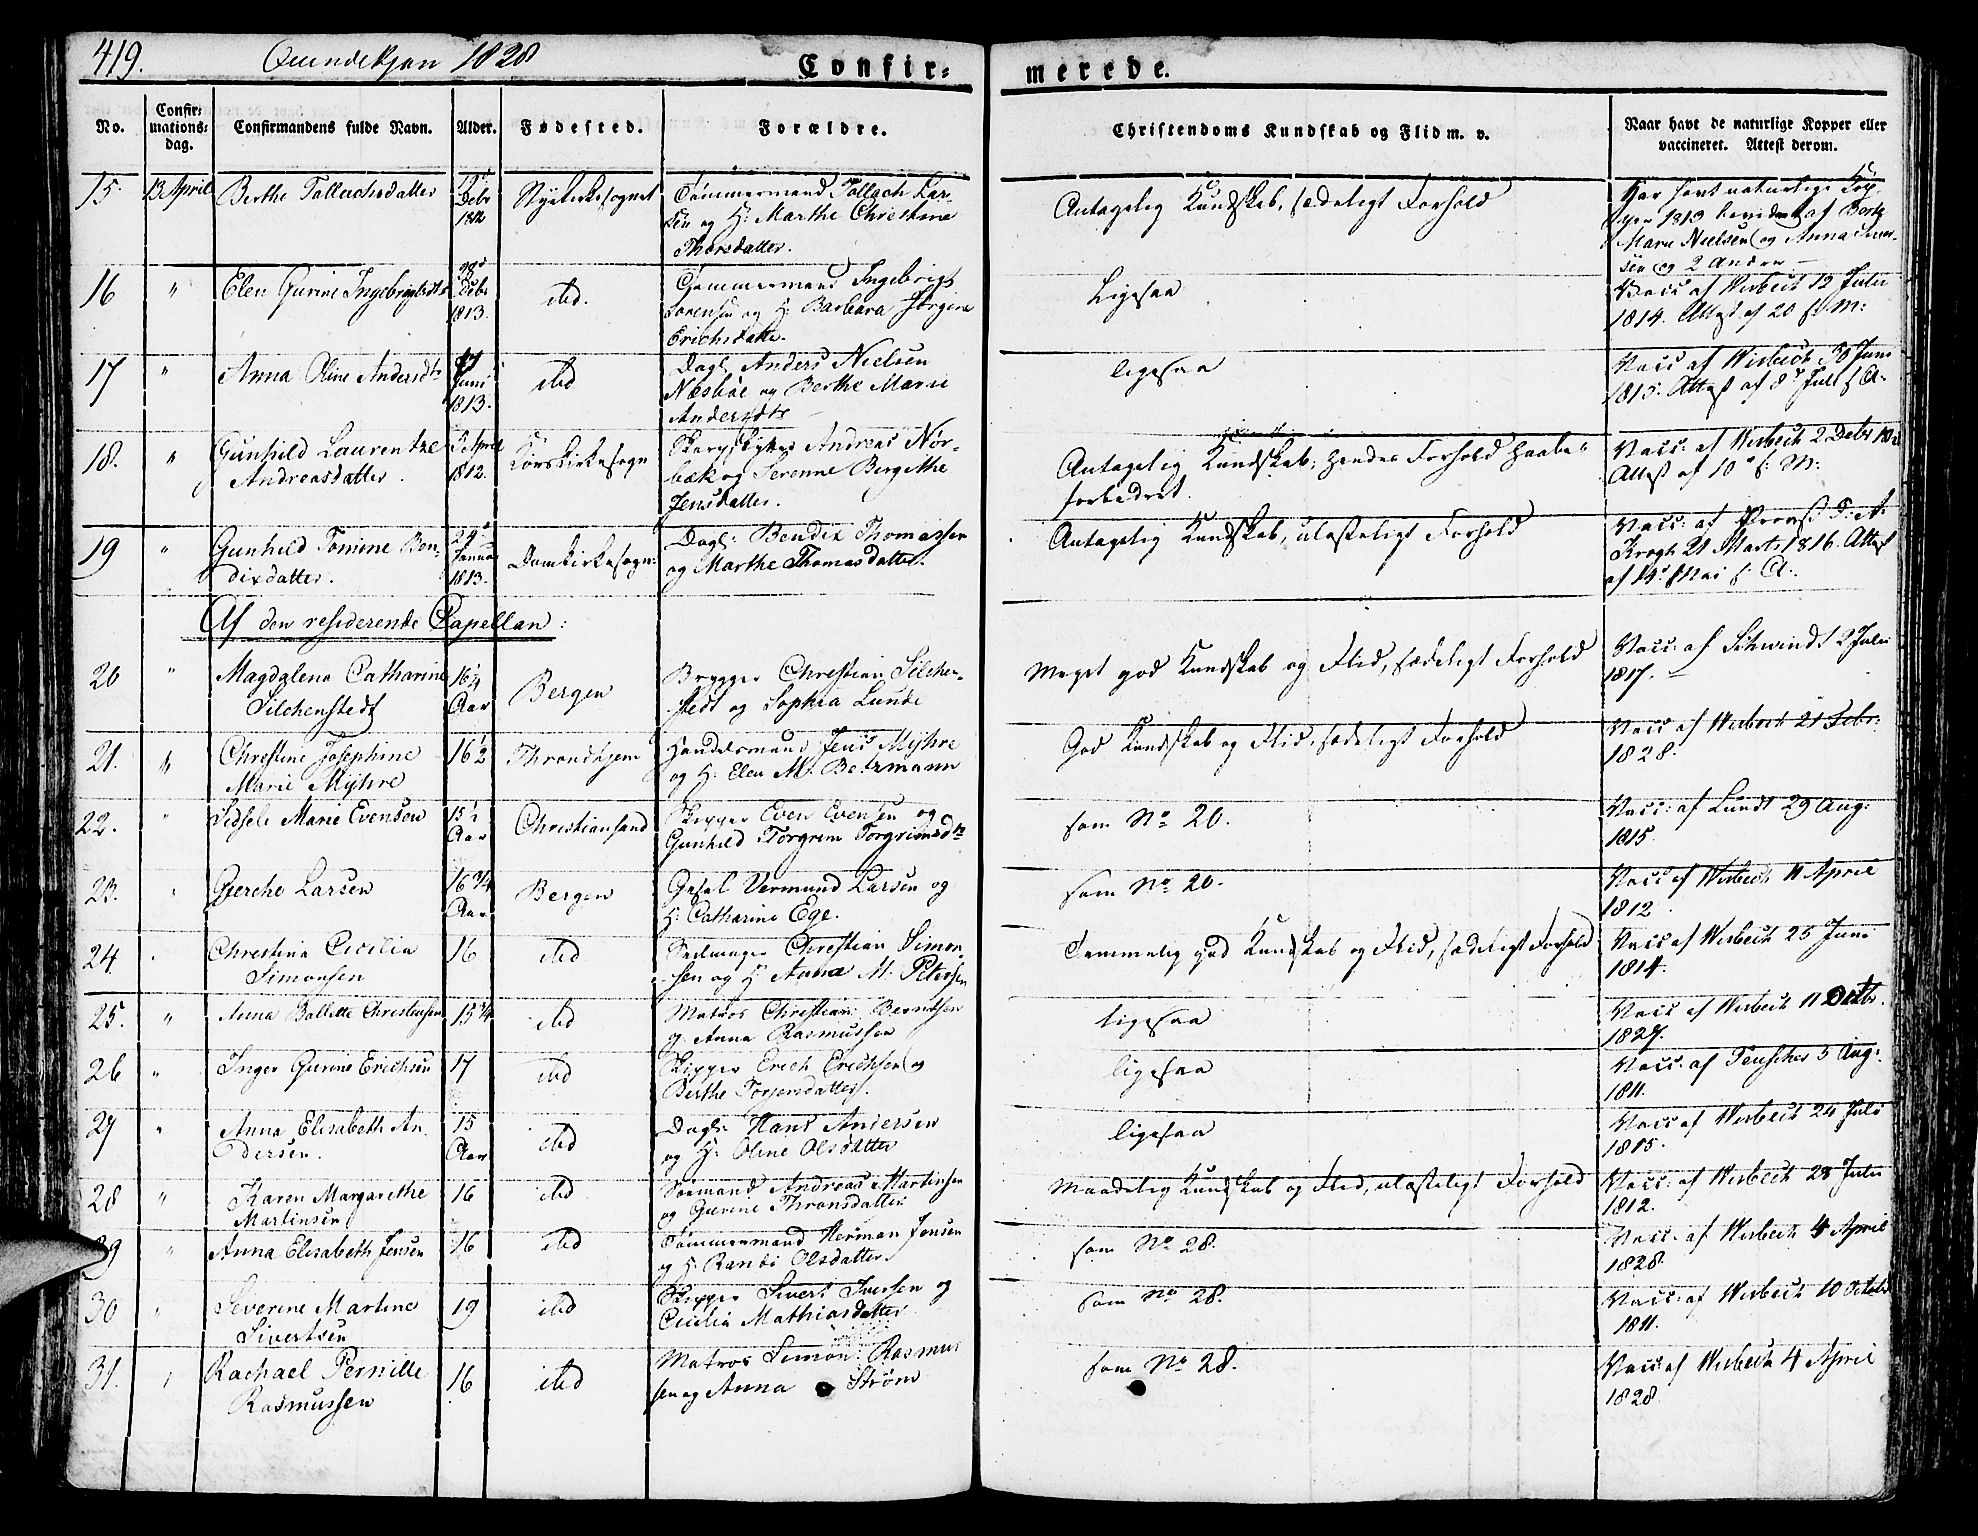 419. Qvindekjøn 1828 Confir-
merede.
No. Confir-mations-dag. Confirmandens fulde Navn. Alder. Fødested. Forældre. Christendoms Kundskab og Flid m. v. Naar havt de naturlige Kopper eller vaccineret. Attest derom.
15. 13 April Berthe Tollachsdatter 19d Debr 1812 Nyekirkesognet Tømmermand Tollach Lar-
sen og H: Marthe Christine
Thorsdatter.
Antagelig Kundskab, sædeligt Forhold
Har havt naturlige Kop-
per 1813 bevidnet af Berthe
Marie Nielsen og Anna
sen og 2 Andre
16 " Elen Gurine Ingebrigtsdtr 28d Debr 1813. ibid. Tømmermand Ingebrigt
Sørensen og H: Barbara Jørgine
Erichsdatter.
Ligesaa
Vacc af Wisbech 12 Julii
1814. Attest af 20 s: M:
17 " Anna Oline Andersdtr Juni 1813. ibid Dagl. Anders Nielsen
Næsbøe og Berthe Marie
Andersdtr
ligesaa
Vacc af Wisbech 30 Juni
1815. Attest af 8d Juli s: A:
18. " Gunhild Laurentze
Andreasdatter.
5 April 1812. Korskirkesogn Skarpskytter Andreas Nør-
bæk og Serenne Bergithe
Jensdatter.
Antagelig Kundskab; hendes Forhold haabes
forbedret.
Vacc: af Wisbech 2 Debr 1812
Attest af 10d s: M:
19 " Gunhild Tonine Ben-
dixdatter.
29d Janua 1813. Domkirkesogn: Dagl: Bendix Thomassen
og Marthe Thomasdatter.
Antagelig Kundskab, ulasteligt Forhold
Vacc: af Provst D: A:
Krogh 21 Marts 1816. Attest
af 14d Mai s: A:
Af den residerende Capellan:
20 " Magdalena Catharine
Silchenstedt
16 1/4 Aar Bergen Brygger Christian Silchen-
stedt og Sophia Lunde
Meget god Kundskab og Flid, sædeligt Forhold
Vacc: af Schwindt 2 Julii
1817.
21. " Christine Josephine
Marie Myhre
16 1/2 Throndhjem Handelsmand Jens Myhre
og H: Elen M. Betzmann
God Kundskab og Flid, sædeligt Forhold
Vacc af Wisbech 21 Febr:
1828.
22. " Sidsele Marie Evensen 15 1/2 Aar Christiansand Skipper Even Evensen og
Gunhild Torgrim Torgrimsdtr
som No 20.
Vacc: af Lundt 29 Aug:
1815.
23. " Gjerche Larsen 16 3/4 Aar Bergen Gesel Vermund Larsen og
H: Catharine Ege.
som No 20.
Vacc af Wisbech 11 April
1812
24 " Christina Cecilia
Simonsen
16 ibid Seilmager Christian Simon-
sen og H: Anna M. Petersen
Temmelig god Kundskab og Flid, sædeligt Forhold
Vacc af Wisbech 25 Juni
1814.
25. " Anna Bollette Christensen 15 3/4 ibid Matros Christian Berntsen
og Anna Rasmussen
ligesaa
Vacc af Wisbech 11 Octbr.
1827.
26 " Inger Gurine Erichsen 17 ibid Skipper Erich Erichsen og
Berthe Torjersdatter
ligesaa
Vacc: af Teuscher 5 Aug:
1811.
27 " Anna Elisabeth An-
dersen.
15 Aar ibid Dagl: Hans Andersen
og H: Oline Olsdatter
ligesaa
Vacc af Wisbech 24 Juli
1815.
28 " Karen Margarethe
Martinsen
16 ibid Sømand Andreas Martinsen
og Gurine Thronsdatter
Maadelig Kundskab og Flid, ulasteligt Forhold
Vacc: af Wisbech 28 Julii
1812.
29 " Anna Elisabeth Jensen 16 ibid Tømmermand Herman Jensen
og H: Randi Olsdatter
som No 28.
Vacc: af Wisbech 4 April
1828.
30 " Severine Martine
Sivertsen
19 ibid Skipper Sivert Iversen og
Cecilia Mathiasdatter
som No 28.
Vacc: af Wisbech 10 Octobr
1811.
31. " Rachael Pernille
Rasmussen
16 ibid Matros Simon Rasmus
sen og Anna Strøm
som No 28.
Vacc af Wisbech 4 April
1828